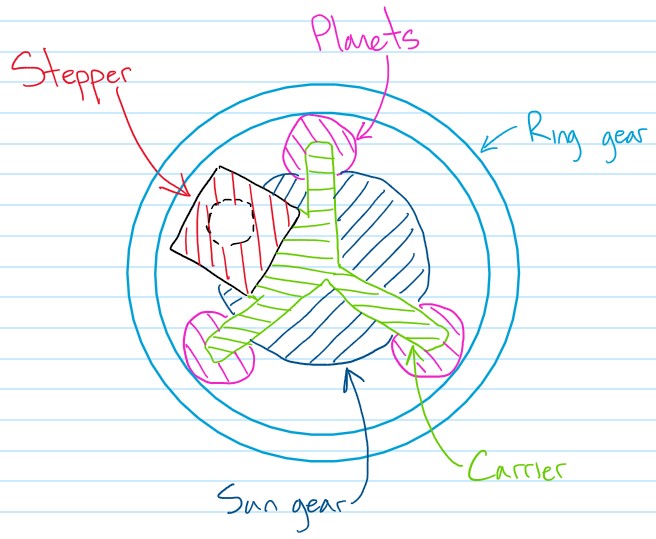 Planets
Stepper
Ring gear
Carrier
Sun gear